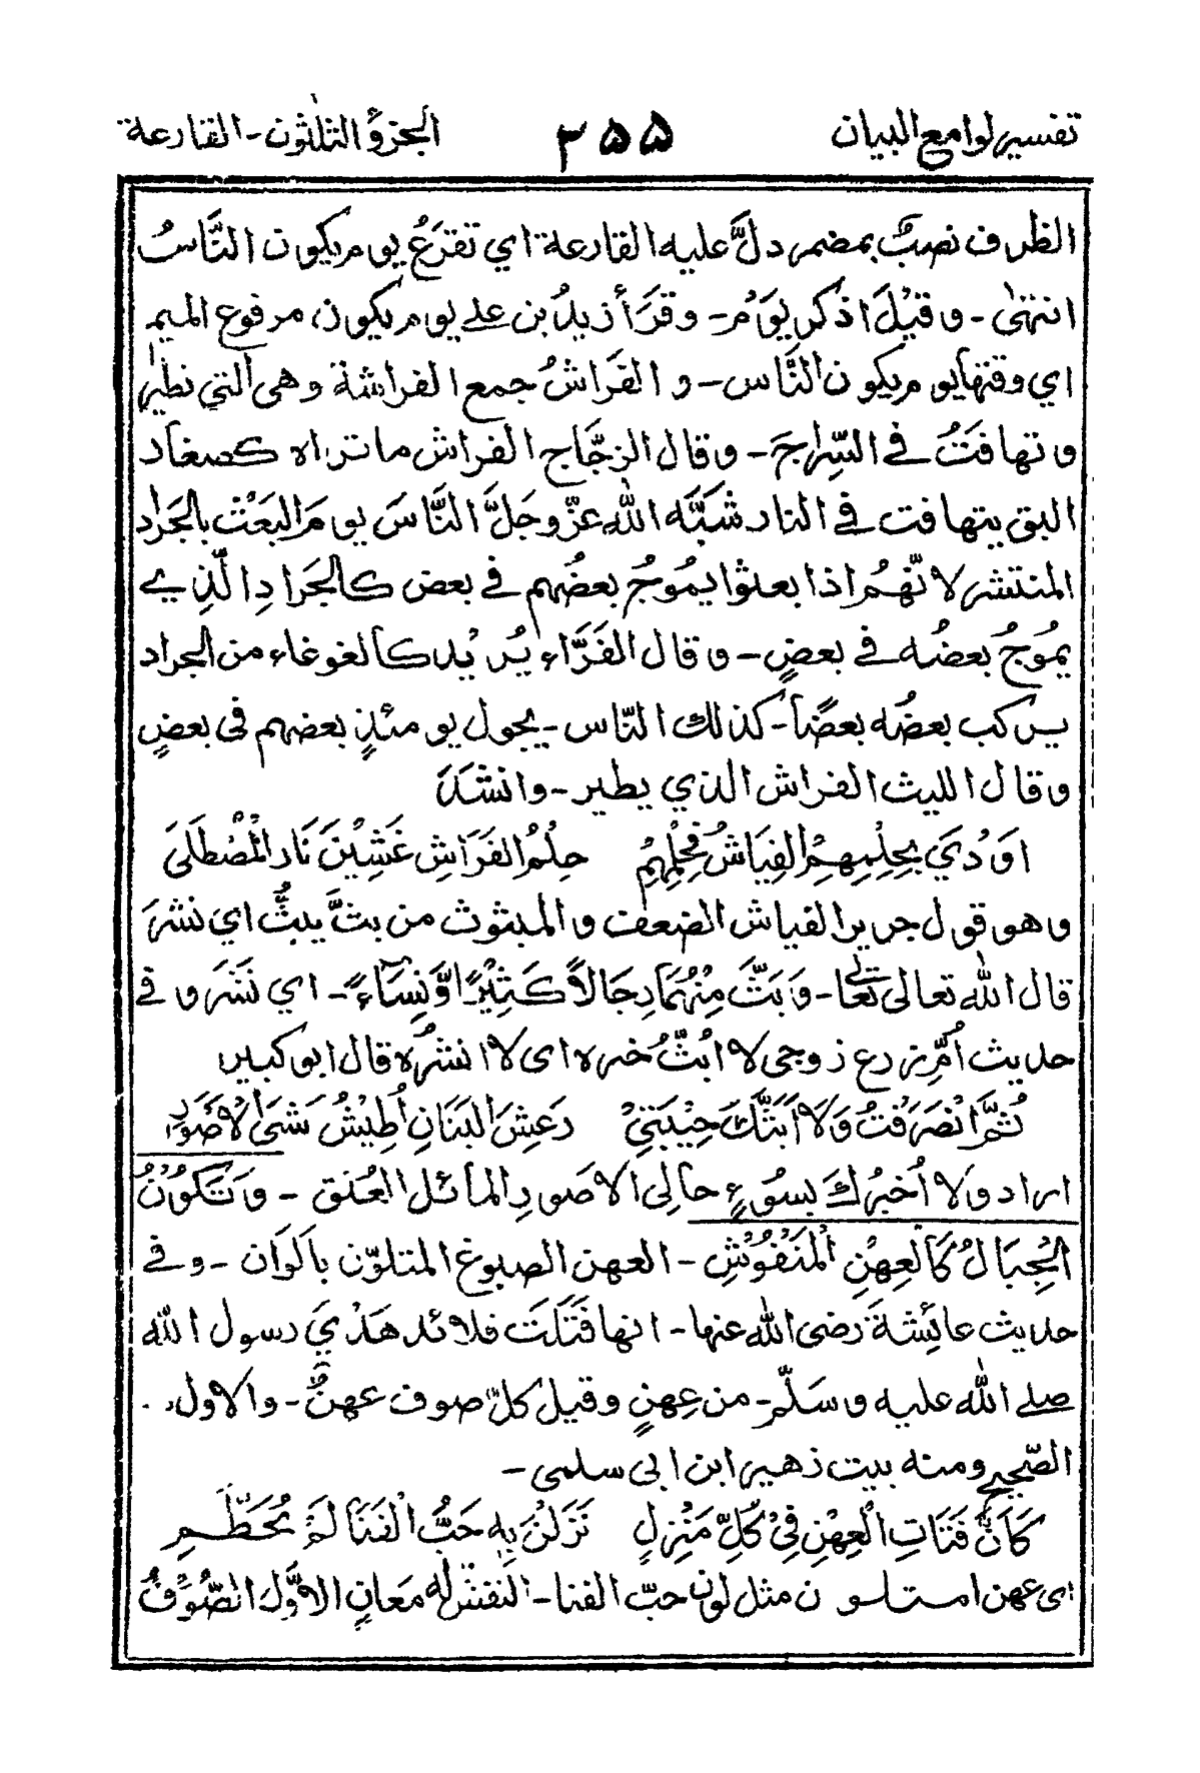 تفسير لوامع البيان ٣٥٥ الجزؤ الثلٰثون - القارعة
الظرف نصبٌ بمضمر دلَّ عليه القارعة اي تقرَعُ يوم يكون النَّاسُ
انتهٰى - وقيْلَ اذكر يوَمُ - وقرَأ زيدُ بن علے يوم يكون مرفوع الميم
اي وقتها يوم يكون النَّاس - و الفَراشُ جمع الفراشة وهى التي نطير
وتهافَتُ في السِّراجَ - وقال الزجَّاج الفراش ما تراه كصغار
البق يتهافت في النار شبَّه اللّٰه عزّوجلَّ النَّاسَ يومَ البَعْث بالجَراد
المنتشر لانّهُم اذا بعثوا يمُوجُ بعضُهم في بعض كالجَرادِ الّذِي
يمُوجُ بعضُه في بعضٍ - وقال الفَرَّاء يُريْد كالغوغاء من الجراد
يركب بعضُه بعضًا - كذلك النّاس - يجول يومئذٍ بعضهم فى بعضٍ
وقال الليث الفراش الذي يطير - وانشَدَ
اوَدُيَ بِحِلِمِهِمُ الفِيَاشُ فحِلْمُهُم حِلُمُ الفَرَاشِ غَشِيْنَ نَار المْصُطَلَى
وهو قول جرير الفياش الضعف والمبثوث من بثَّ يبثُّ اي نشرَ
قال اللّٰه تعالى تعالٰى - وَبَثَّ مِنْهُمَا رِجَالاً كَثِيْرًا وَّنِسَاءً - اي نَشَرَ وفي
حديث اُمِّ زرع زوجى لا ابُثُّ خبره اى لا انشُره قال ابو كبير
ثُمَّ انْصَرَفْتُ وَلاَ اَبَثَّكَ حِيْبَتِيْ رَعِشَ البَنَانِ اُطِيْشُ مَشَىَ الاَصْوَرِ
اراد ولا اُخبرُكَ بسُوْءِ حالِى الاصَورِ المائل العُنق - وَتَكُوْنُ
الْجِبَالُ كَالْعِهْنِ الْمَنْفُوْشِ - العهن الصبوغ المتلوّن بالَوَان - وفي
حديث عائِشةَ رضى اللّٰه عنها - انها فَتَلَت قلائد هَدْيَ رسول اللّٰه
صلے اللّٰه عليه وسَلّم - من عِهنٍ وقيل كلّ صوف عهنٌ - والاول
الصّحيح ومنه بيت زهير ابن ابى سلمى -
كَاَنَّ فَتَاتِ الْعِهْنِ فِيْ كُلِّ مَنْزِلٍ نَزَلْنَ بِهٖ حَبُّ الْفَنَا لَمْ يُحَطَّمِ
اى عهن استلون مثل لون حبّ الفنا - النفش له معَانٍ الاوَّل الصُّوْفُ